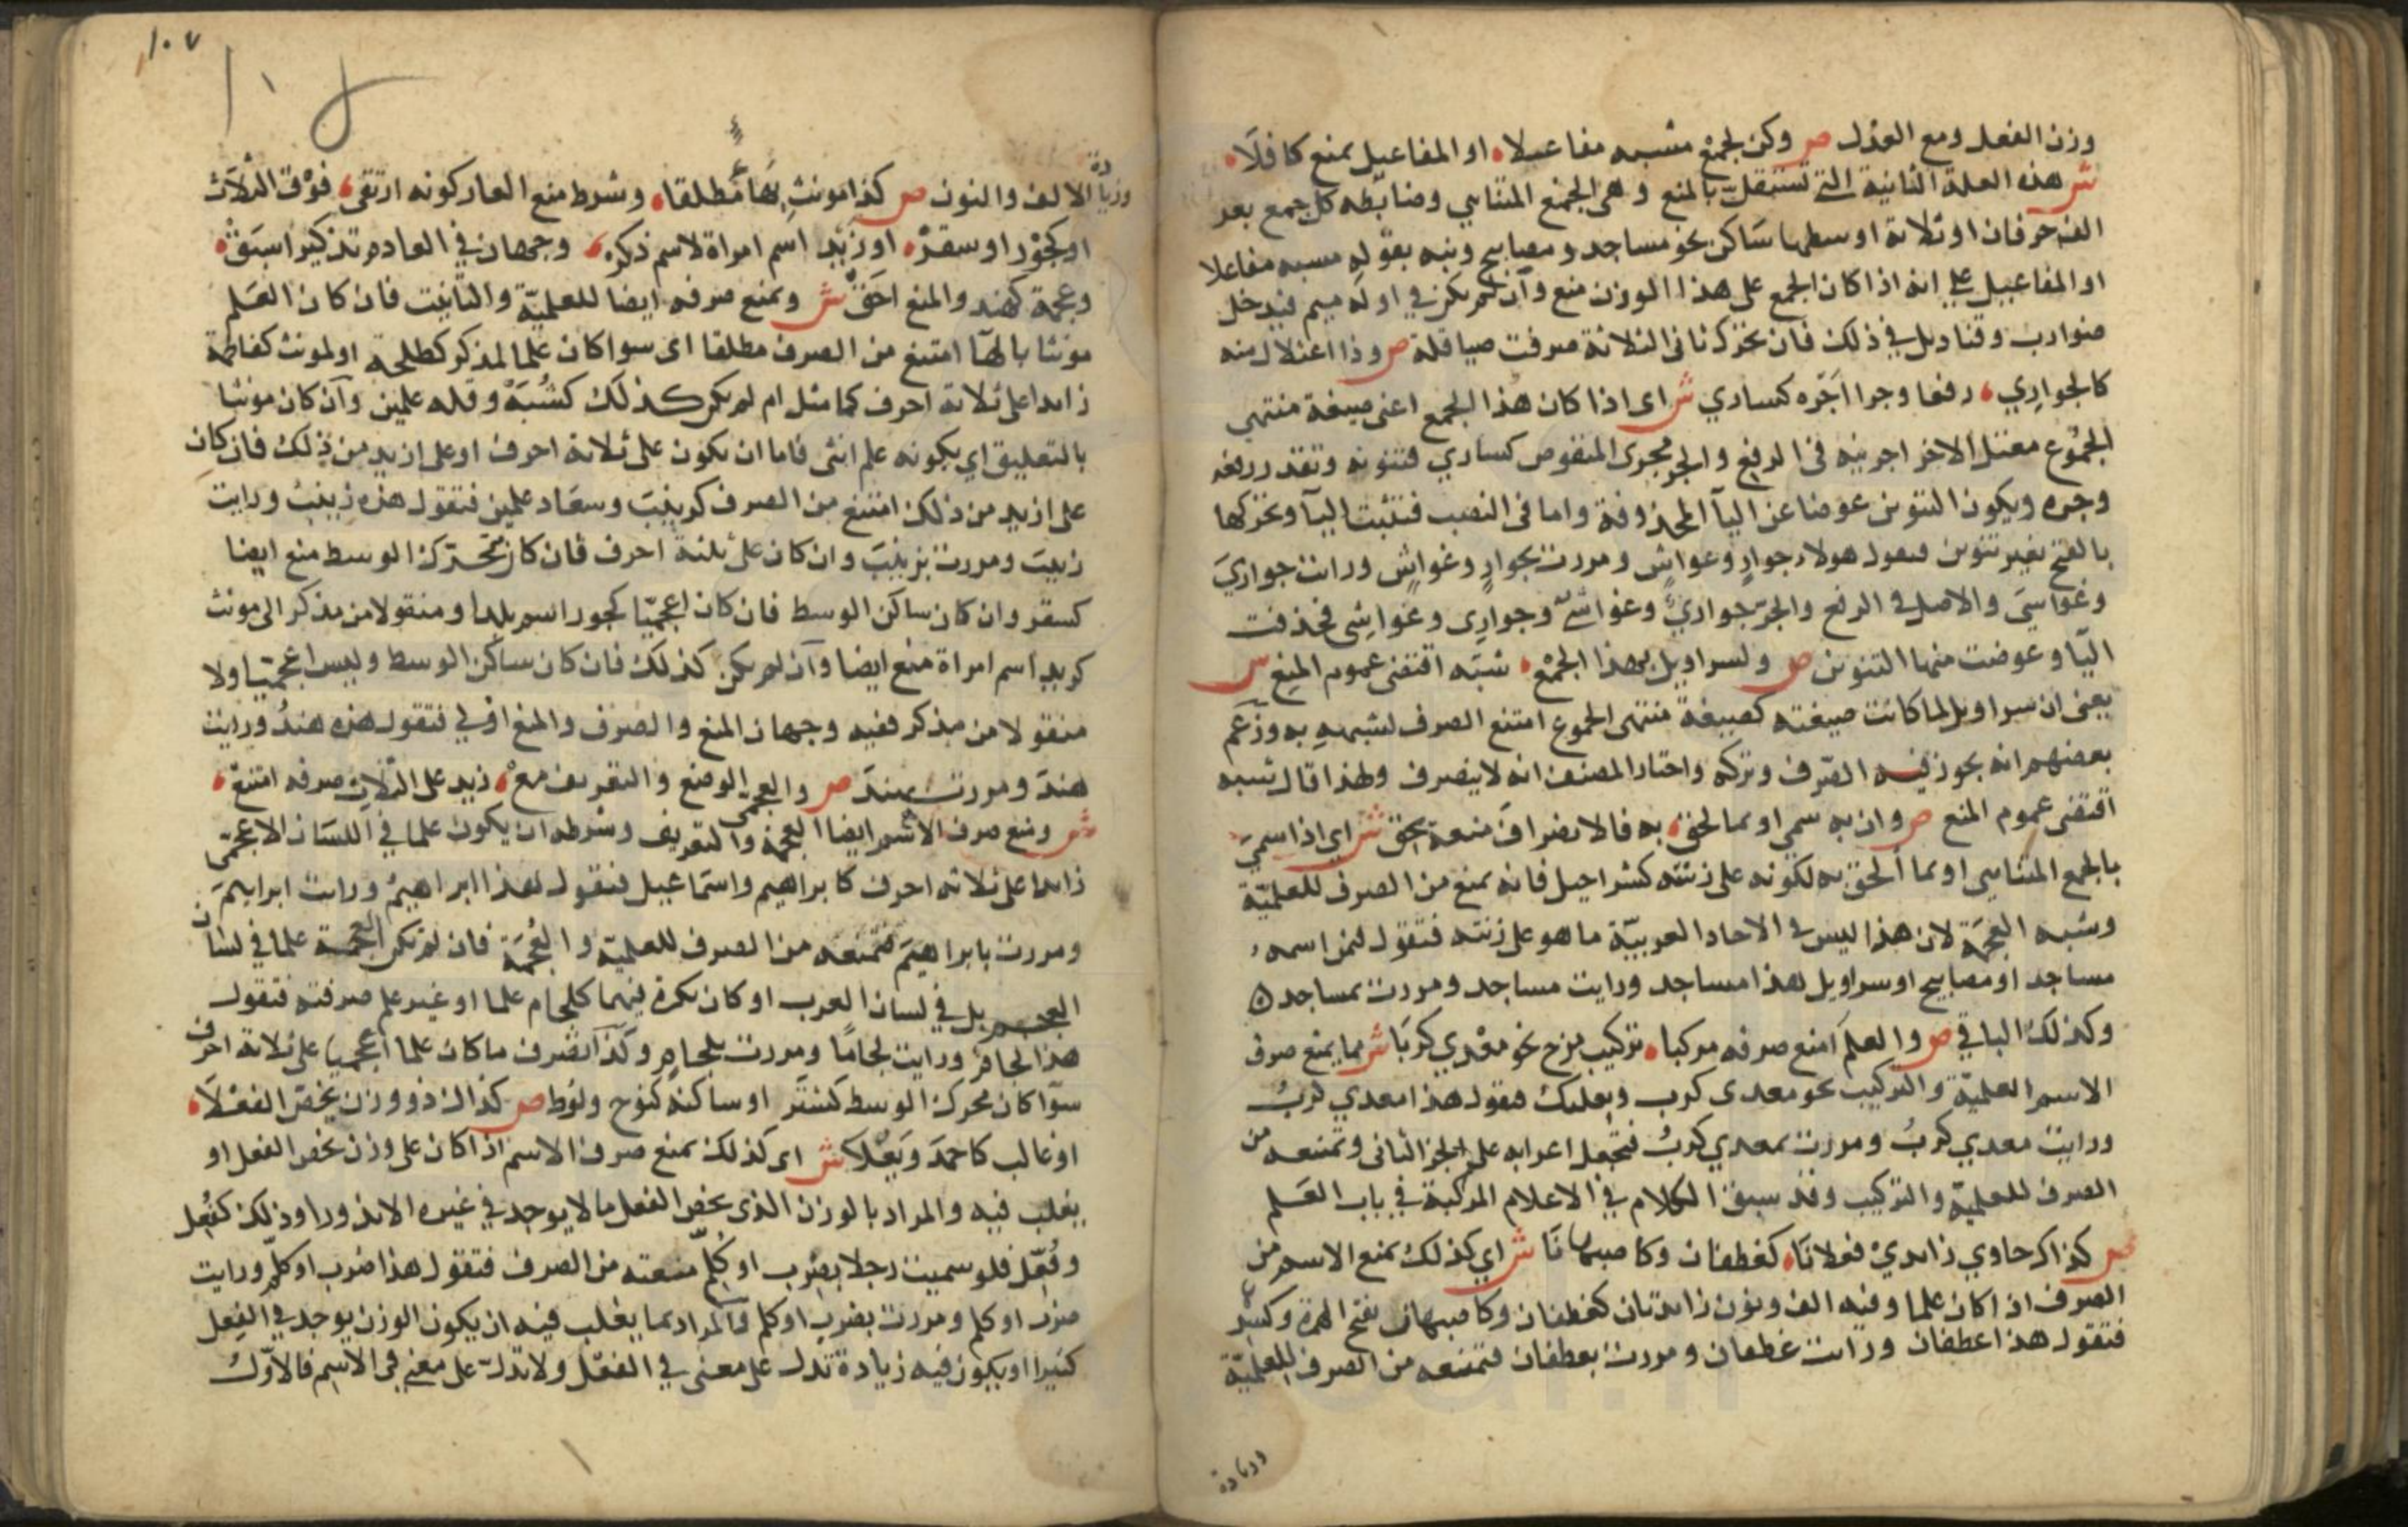 وزن الفعل ومع العدل ص وكن لجمع مشبه مفاعلا او المفاعيل بمنع كافلا
ش هذه العلة الثانية التي تستقل بالمنع وهي الجمع المتناهي وضابطه كل جمع بعد
الف حرفان او ثلاثة اوسطها ساكن نحو مساجد ومصابيح ونبه بقوله مشبه مفاعلا
او المفاعيل على انه اذا كان الجمع على هذا الوزن منع وان لم يكن في اوله ميم فيدخل
ضوارب وقناديل في ذلك فان تحرك ثاني الثلاثة صرفت صياقلة ص وذا اعتلال منه
كالجواري رفعا وجرا اجره كساري ش اى اذا كان هذا الجمع اعنى صيغة منتهى
الجموع معتل الاخر اجريته في الرفع والجر مجرى المنقوص كساري فتنونه وتقدر رفعه
وجره ويكون التنوين عوضا عن اليآ المحذوفة واما في النصب فتثبت اليآ وتحركها
بالفتح بغير تنوين فتقول هولاء جوارٍ وغواشٍ ومررت بجوارٍ وغواشٍ ورايت جواريَ
وغواشيَ والاصل في الرفع والجر جواريٌ وغواشيٌ وجوارى وغواشى فحذفت
اليآ وعوضت منها التنوين ص ولسراويل بهذا الجمع شبه اقتضى عموم المنع ش
يعنى ان سراويل لما كانت صيغته كصيغة منتهى الجموع امتنع الصرف لشبهه به وزعم
بعضهم انه يجوز فيه الصرف وتركه واختار المصنف انه لا ينصرف ولهذا قال شبه
اقتضى عموم المنع ص وان به سمي او بما لحق به فالانصراف منعه يحق ش اي اذا سمي
بالجمع المتناهي او بما الحق به لكونه على زنته كشراحيل فانه يمنع من الصرف للعلمية
وشبه العجمة لان هذا ليس في الاحاد العربية ما هو على زنته فتقول لمن اسمه
مساجد او مصابيح او سراويل هذا مساجد ورايت مساجد ومررت بمساجد
وكذلك الباقي ص والعلم امنع صرفه مركبا تركيب مزج نحو معدي كربا ش مما يمنع صرف
الاسم العلمية والتركيب نحو معدى كرب وبعلبك فتقول هذا معدي كربُ
ورايت معدي كربَ ومررت بمعدي كربَ فتجعل اعرابه على الجز الثانى وتمنعه من
الصرف للعلمية والتركيب وقد سبق الكلام في الاعلام المركبة في باب العلم
ص كذاك حاوي زائدي فعلانا كغطفان وكاصبهانا ش اي كذلك يمنع الاسم من
الصرف اذا كان علما وفيه الف ونون زائدتان كغطفان وكاصبهان بفتح الهمزة وكسر
فتقول هذا غطفان ورايت غطفان ومررت بغطفان فتمنعه من الصرف للعلمية
وزيادة
١٠٧
وزيادة الالف والنون ص كذا مونث بهاء مطلقا وشرط منع العار كونه ارتقى فوق الثلاث
او كجور او سقر او زيد اسم امراة لا اسم ذكر وجهان في العادم تذكيرا سبق
وعجمة كهند والمنع احق ش ويمنع صرفه ايضا للعلمية والتانيث فان كان العلم
مونثا بالهآ امتنع من الصرف مطلقا اى سوا كان علما لمذكر كطلحة او لمونث كفاطمة
زائدا على ثلاثة احرف كما مثل ام لم يكن كذلك كشبة وقلة علمين وان كان مونثا
بالتعليق اي بكونه علم انثى فاما ان يكون على ثلاثة احرف او على ازيد من ذلك فان كان
على ازيد من ذلك امتنع من الصرف كزينب وسعاد علمين فتقول هذه زينب ورايت
زينب ومررت بزينب وان كان على ثلثة احرف فان كان محرك الوسط منع ايضا
كسقر وان كان ساكن الوسط فان كان اعجميا كجور اسم بلد او منقولا من مذكر الى مونث
كزيد اسم امراة منع ايضا وان لم يكن كذلك فان كان ساكن الوسط وليس اعجميا ولا
منقولا من مذكر ففيه وجهان المنع والصرف والمنع اولى فتقول هذه هندُ ورايت
هندَ ومررت بهندَ ص والعجمي الوضع والتعريف مع زيد على الثلاث صرفه امتنع
ش ويمنع صرف الاسم ايضا العجمة والتعريف وشرطه ان يكون علما في اللسان الاعجمي
زائدا على ثلاثة احرف كابراهيم واسماعيل فتقول هذا ابراهيمُ ورايت ابراهيمَ
ومررت بابراهيمَ فتمنعه من الصرف للعلمية والعجمة فان لم يكن العجمة علما في لسان
العجم بل في لسان العرب او كان نكرة فيهما كلجام علما او غير علم صرفته فتقول
هذا لجامٌ ورايت لجامًا ومررت بلجامٍ وكذا تصرف ما كان علما اعجميا على ثلاثة احرف
سوآ كان محرك الوسط كشتر او ساكنه كنوح ولوط ص كذاك ذو وزن يخص الفعلا
او غالب كاحمد ويعلا ش اى كذلك يمنع صرف الاسم اذا كان على وزن يخص الفعل او
يغلب فيه والمراد بالوزن الذى يخص الفعل ما لا يوجد في غيره الا ندورا وذلك كفُعِل
وفُعِّل فلو سميت رجلا بضُرِب او كُلِّم منعته من الصرف فتقول هذا ضرب او كلم ورايت
ضرب او كلم ومررت بضرب او كلم والمراد بما يغلب فيه ان يكون الوزن يوجد في الفعل
كثيرا او يكون فيه زيادة تدل على معنى في الفعل ولا تدل على معنى في الاسم فالاول